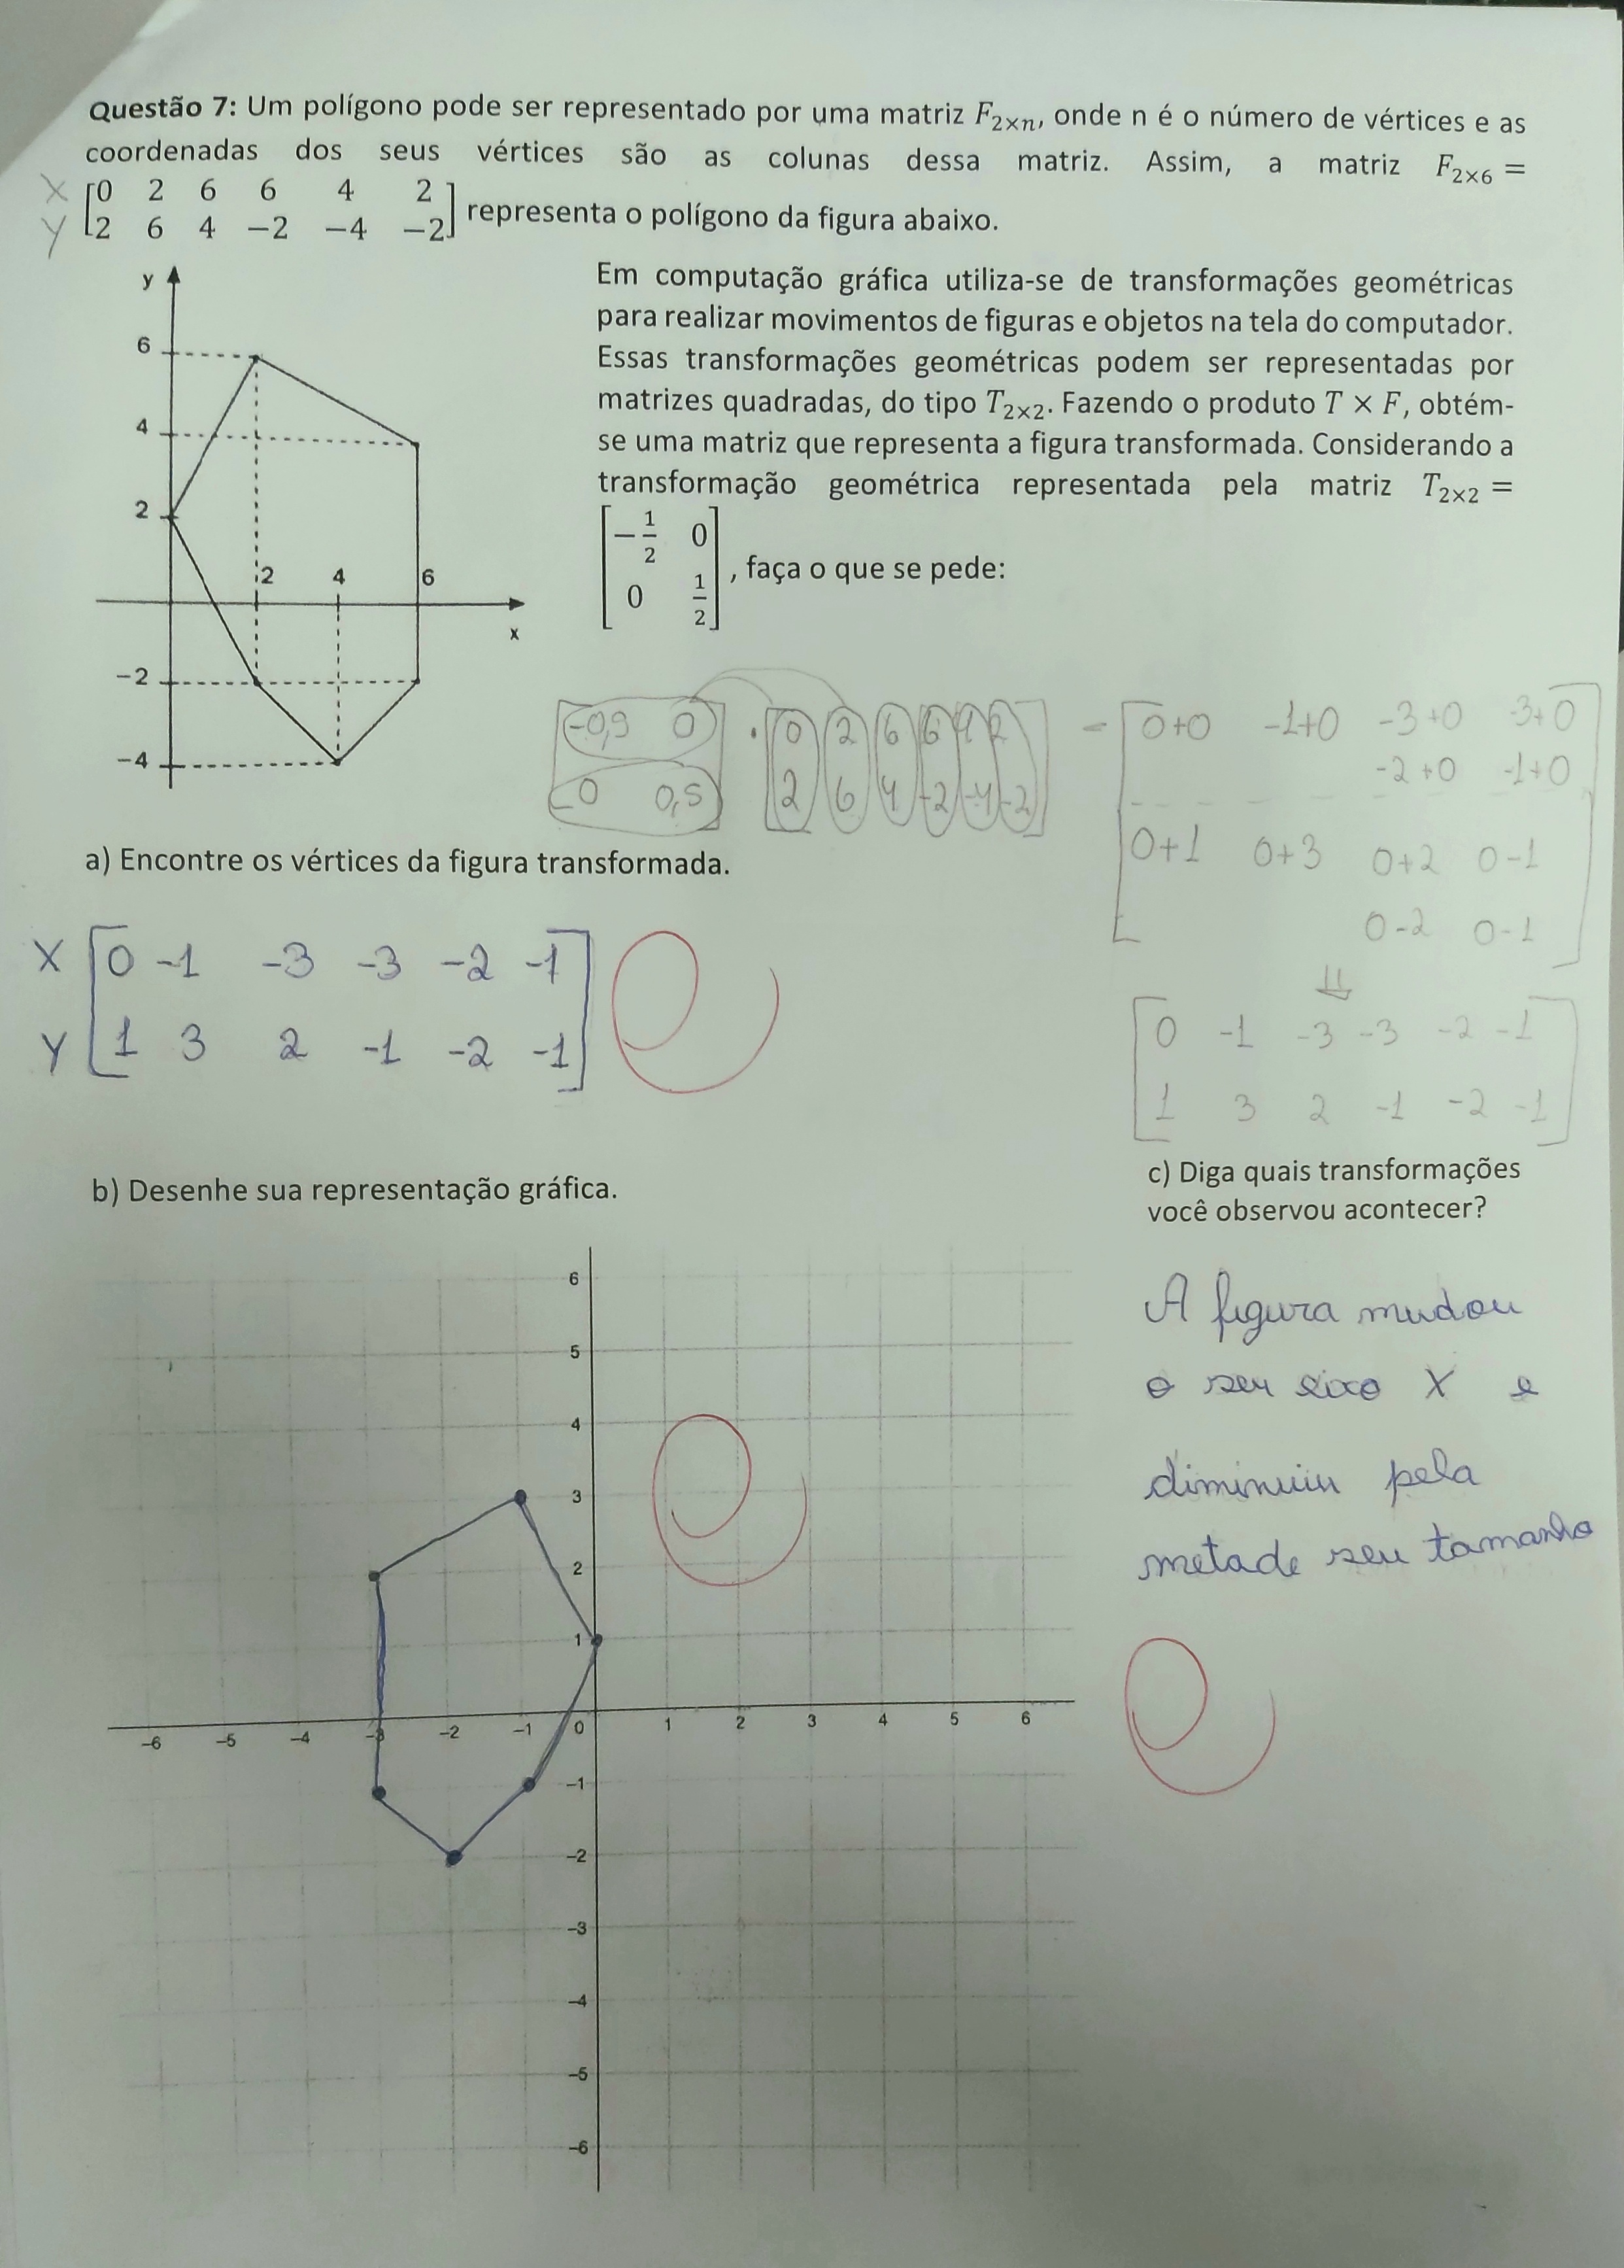 Questão 7: Um polígono pode ser representado por uma matriz F2×n, onde n é o número de vértices e as
coordenadas dos seus vértices são as colunas dessa matriz. Assim, a matriz F2×6 =
X [0 2 6 6 4 2
Y 2 6 4 −2 −4 −2] representa o polígono da figura abaixo.
y
6
4
2
2 4 6
x
−2
−4
Em computação gráfica utiliza-se de transformações geométricas
para realizar movimentos de figuras e objetos na tela do computador.
Essas transformações geométricas podem ser representadas por
matrizes quadradas, do tipo T2×2. Fazendo o produto T × F, obtém-
se uma matriz que representa a figura transformada. Considerando a
transformação geométrica representada pela matriz T2×2 =
[−1/2 0
0 1/2] , faça o que se pede:
0 · 0 2 6 6 4 2 = 0+0 -1+0 -3+0 -3+0
-2+0 -1+0
0 0,5 2 6 4 -2 -4 -2
0+1 0+3 0+2 0-1
0-2 0-1
⇓
0 -1 -3 -3 -2 -1
1 3 2 -1 -2 -1
a) Encontre os vértices da figura transformada.
X 0 -1 -3 -3 -2 -1
Y 1 3 2 -1 -2 -1
b) Desenhe sua representação gráfica.
6
5
4
3
2
1
−6 −5 −4 −3 −2 −1 0 1 2 3 4 5 6
−1
−2
−3
−4
−5
−6
c) Diga quais transformações
você observou acontecer?
A figura mudou
o seu eixo X e
diminuiu pela
metade seu tamanho